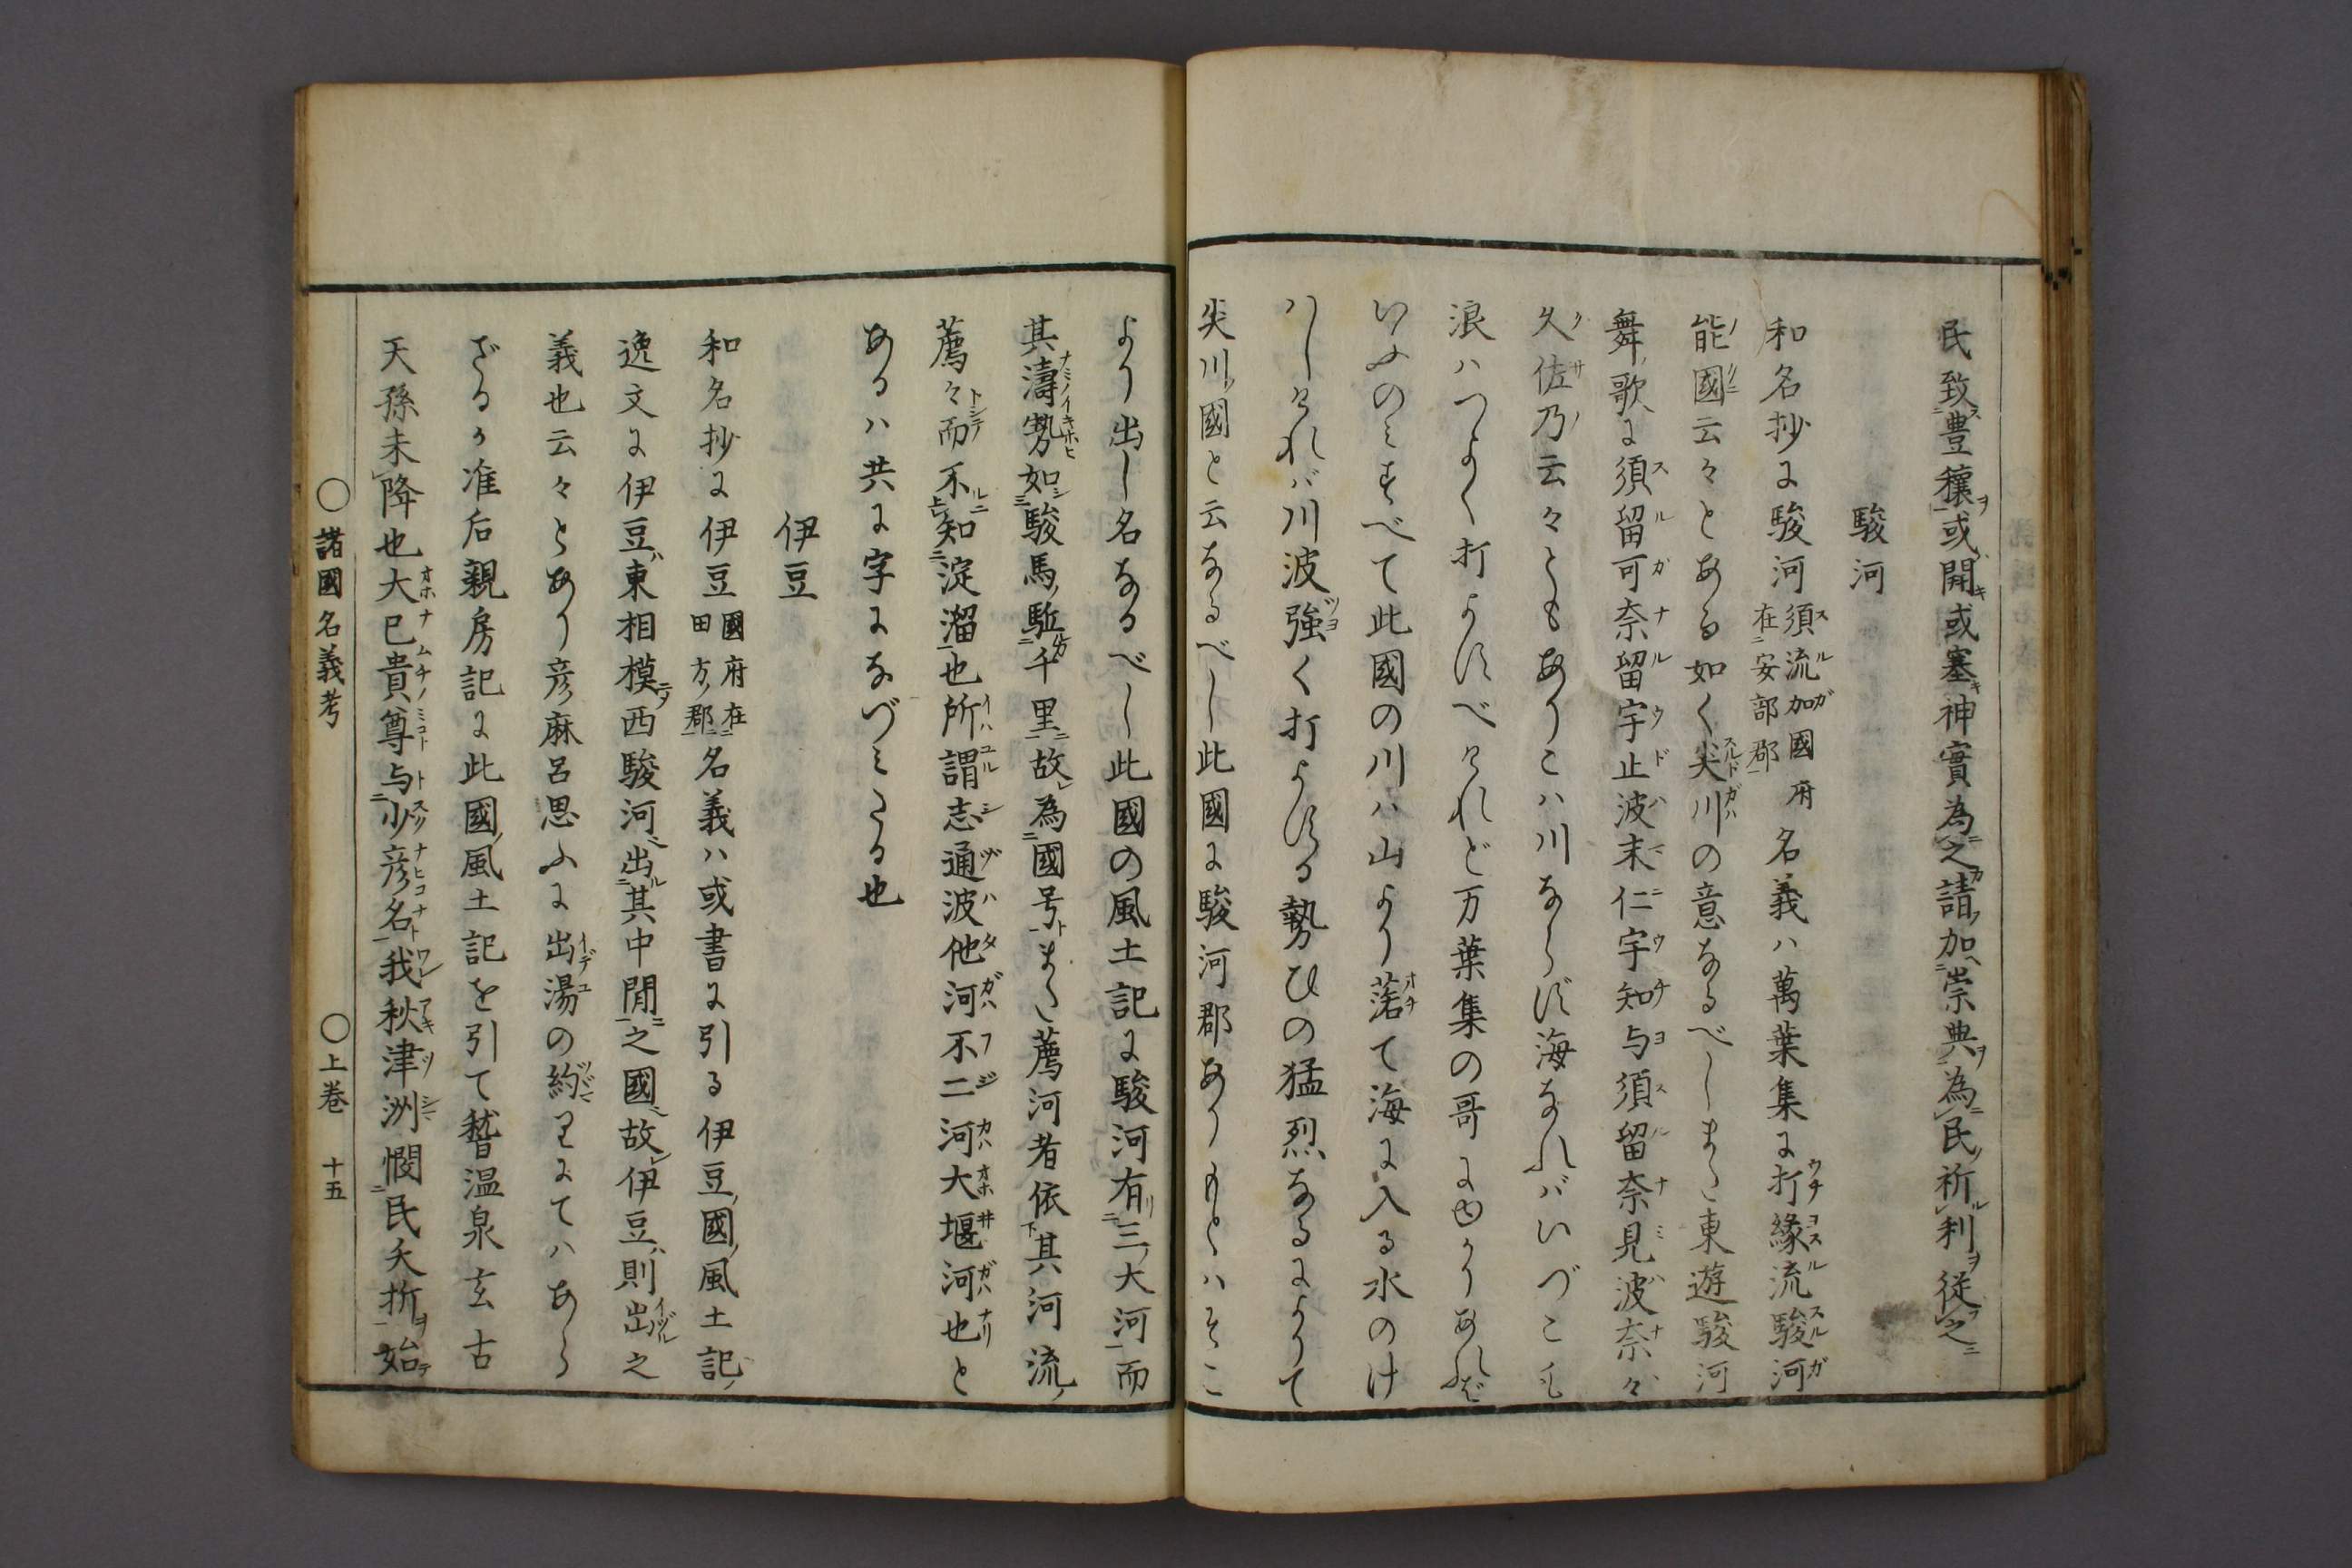 民致豊穰或開或塞神實為之請加崇典為民祈利従之
駿河
和名抄に駿河須流加國府在安部郡名義ハ萬葉集に打縁流駿河
能國云々とある如く尖川の意なるべしまた東遊駿河
舞歌に須留可奈留宇止波末仁宇知与須留奈見波奈々
久佐乃云々ともありこハ川ならず海なれバいづこも
浪ハつよく打よすべけれど万葉集の哥にゆりあれバ
いふのミすべて此國の川ハ山より落て海に入る水のけ
ハしけれバ川波強く打よする勢ひの猛烈なるによりて
尖川國と云なるべし此國に駿河郡ありもとハそこ
より出し名なるべし此國の風土記に駿河有三大河而
其濤勢如駿馬駈千里故為國号また薦河者依其河流
薦々而不知淀溜也所謂志通波他河不二河大堰河也と
あるハ共に字になづミたる也
伊豆
和名抄に伊豆國府在田方郡名義ハ或書に引る伊豆國風土記
逸文に伊豆東相模西駿河出其中間之國故伊豆則出之
義也云々とあり彦麻呂思ふに出湯の約りにてハあら
ざるか准后親房記に此國風土記を引て稽温泉玄古
天孫未降也大已貴尊与少彦名我秋津洲憫民夭折始
○諸國名義考 ○上巻 十五